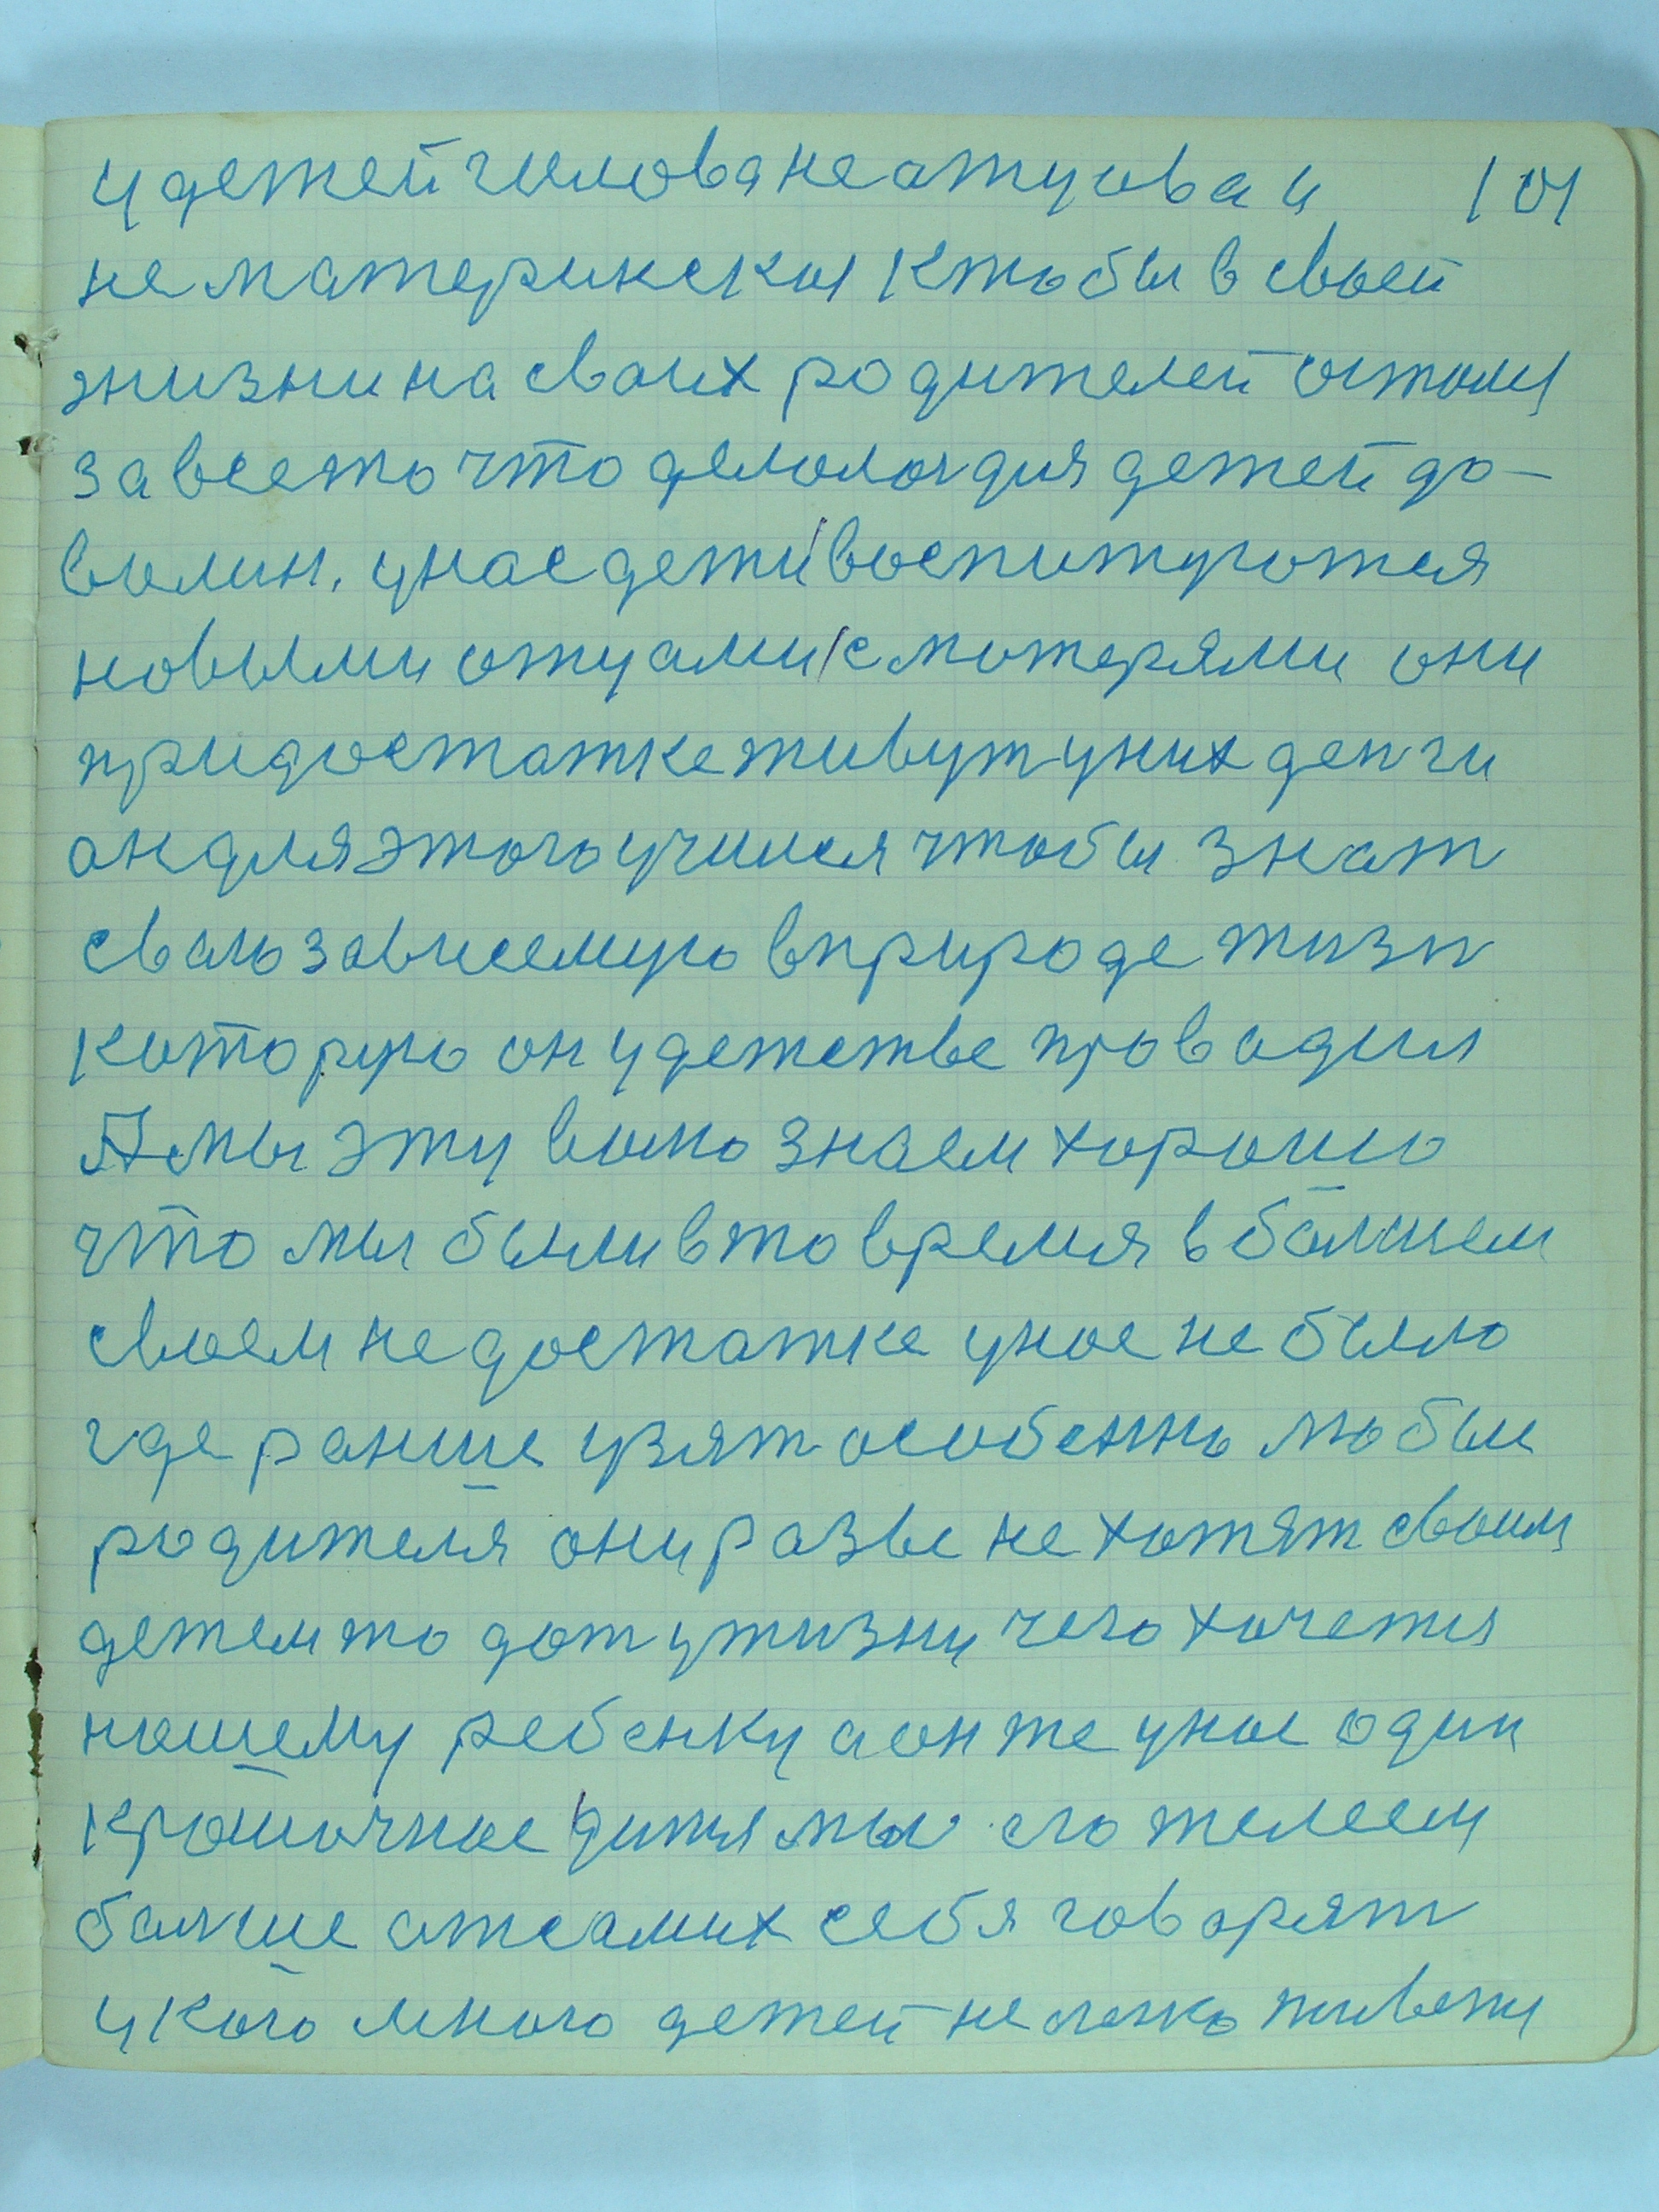 у детей голова не отцова и 101
не материнская кто бы в своей
жизни на своих родителей остался
за все то что делалось для детей до-
волин, у нас дети воспитуются
новыми отцами с матерями они
при достатке живут у них денги
он для этого учился чтобы знат
сваю зависемую в природе жизн
которую он у детстве провадил
А мы эту вино знаем хорошо
что мы были в то время в балшем
своем недостатке у нас не было
где ранше узят особенно любые
родителя они разве не хотят своим
детем то дат у жизни чего хочется
нашему ребенку а он же у нас один
крошочное дитя мы его желеем
балше от самих себя говорят
у кого много детей не легко живетц